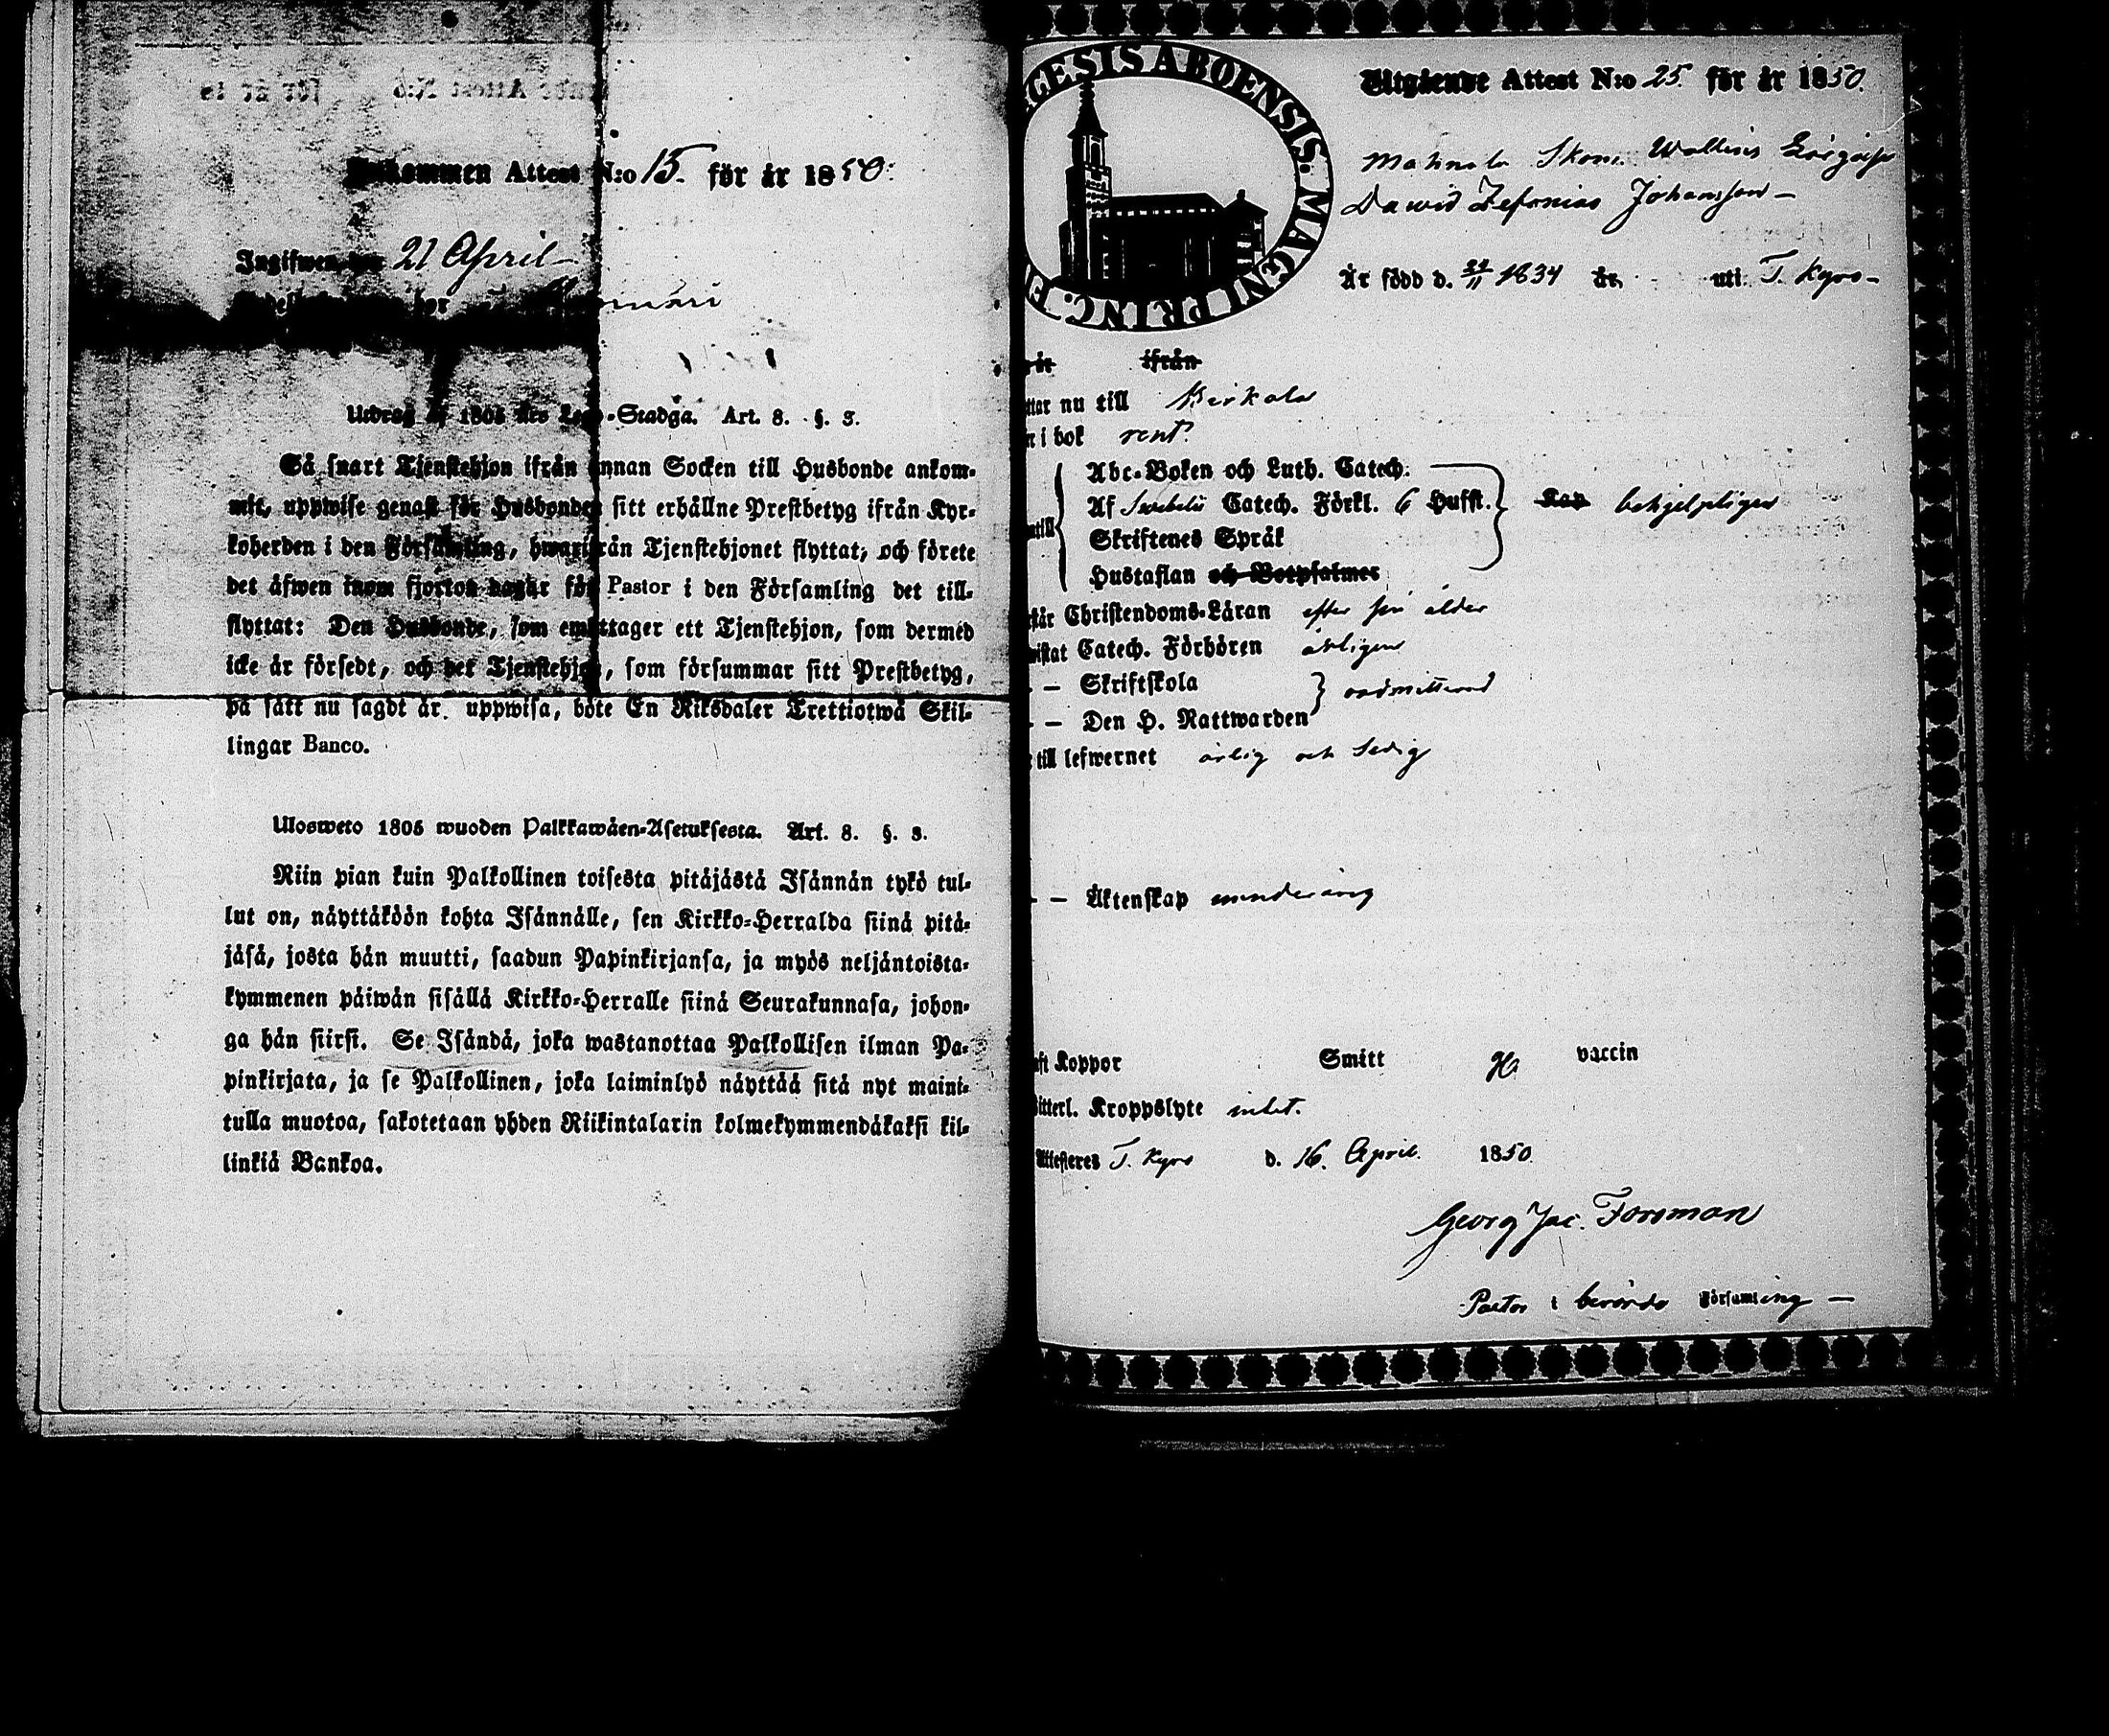 Ankommen Attest N:o 15. för år 1850.
Ingifwen den 21 April
Utdrag af 1805 års Lego-Stadga. Art. 8. §. 3.
Så snart Tjenstehjon ifrån annan Socken till Husbonde ankom-
mit, uppwise genast för Husbonden sitt erhållne Prestbetyg ifrån Kyr-
koherden i den Församling, hwarifrån Tjenstehjonet flyttat, och förete
det äfwen inom fjorton dagar för Pastor i den Församling det till-
flyttat: Den Husbonde, som emottager ett Tjenstehjon, som dermed
icke är försedt, och det Tjenstehjon, som försummar sitt Prestbetyg,
på sätt nu sagdt är uppwisa, böte En Riksdaler Trettiotwå Skil-
lingar Banco.
Ulosweto 1805 wuoden Palkkawäen-Asetuksesta. Art. 8. §. 3.
Niin pian kuin Palkollinen toisesta pitäjästä Isännän tykö tul-
lut on, näyttäköön kohta Isännälle, sen Kirkko-Herralda siinä pitä-
jäsä, josta hän muutti, saadun Papinkirjansa, ja myös neljäntoista-
kymmenen päiwän sisällä Kirkko-Herralle siinä Seurakunnasa, johon-
ga hän siirsi. Se Isändä, joka wastanottaa Palkollisen ilman Pa-
pinkirjata, ja se Palkollinen, joka laiminlyö näyttää sitä nyt maini-
tulla muotoa, sakotetaan yhden Riikintalarin kolmekymmendäkaksi kil-
linkiä Bankoa.
GESIS ABOENSIS. MAGNI PRINC. F
Utgående Attest N:o 25. för år 1850.
Mahnala Skom.
Dawid Zefanias Johansson
Är född d. 24/11 1834 år uti T. Kyro
är ifrån
ttar nu till Birkala
n i bok rent.
Abc-Boken och Luth. Catech.
Af Svebelii Catech. Förkl. 6 Hufst. Kap behjelpligen
Skriftenes Språk
ntill
Hustaflan och Botpsalmer
står Christendoms-Läran efter sin ålder
wistat Catech. Förhören årligen
— Skriftskola
oadmitterad
— Den H. Nattwarden
till lefwernet ärlig och sedig
— Äktenskap minderårig
aft Koppor Smitt vaccin
Witterl. Kroppslyte intet.
Attesteres T. Kyro d. 16. April. 1850.
Georg Jac. Forsman
Pastor i berörde Församling